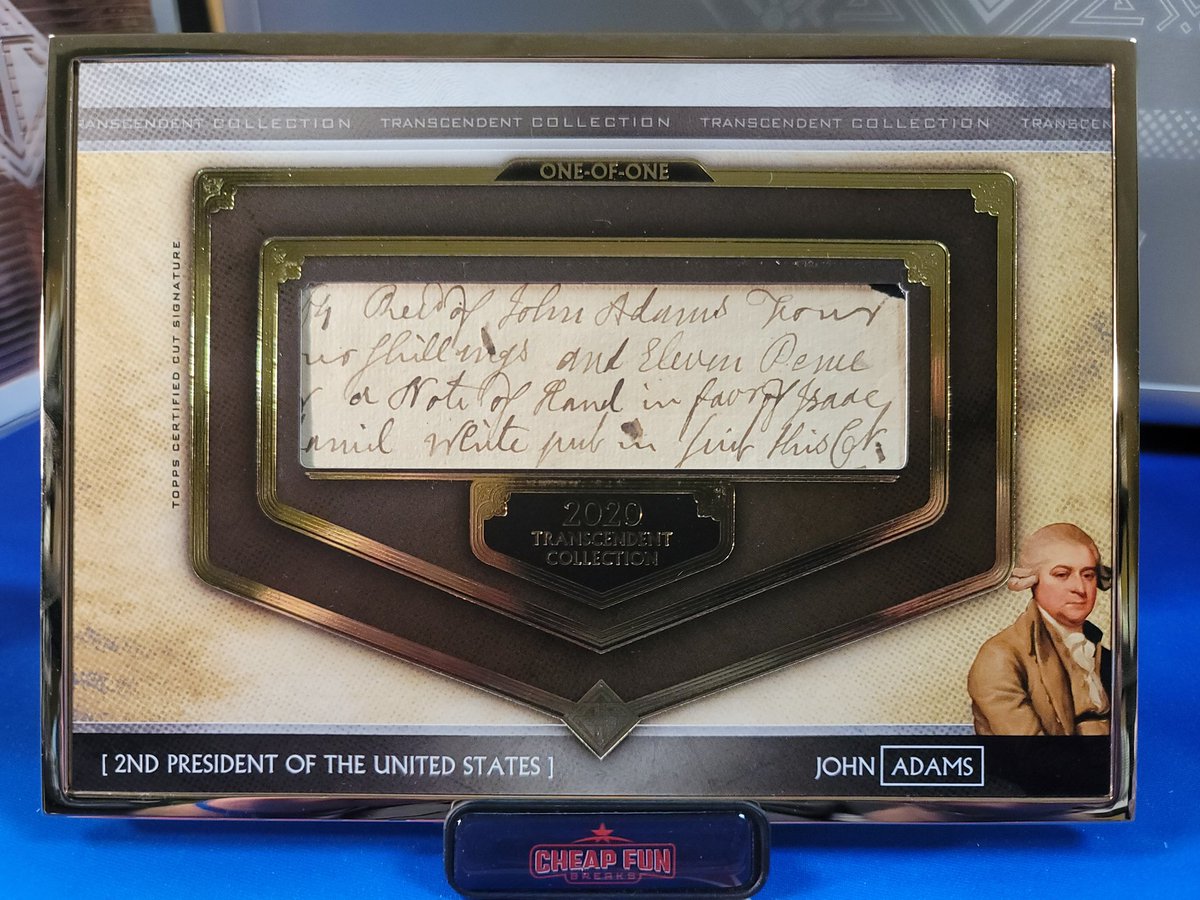 TRANSCENDENT COLLECTION TRANSCENDENT COLLECTION TRANSCENDENT COLLECTION TRANSCEN
ONE-OF-ONE
TOPPS CERTIFIED CUT SIGNATURE
of John Adams Four
Shillings and Eleven Pence
a Note of Hand in favor of Isaac
White put in Suit this
2020
TRANSCENDENT
COLLECTION
[ 2ND PRESIDENT OF THE UNITED STATES ]
JOHN ADAMS
CHEAP FUN
BREAKS